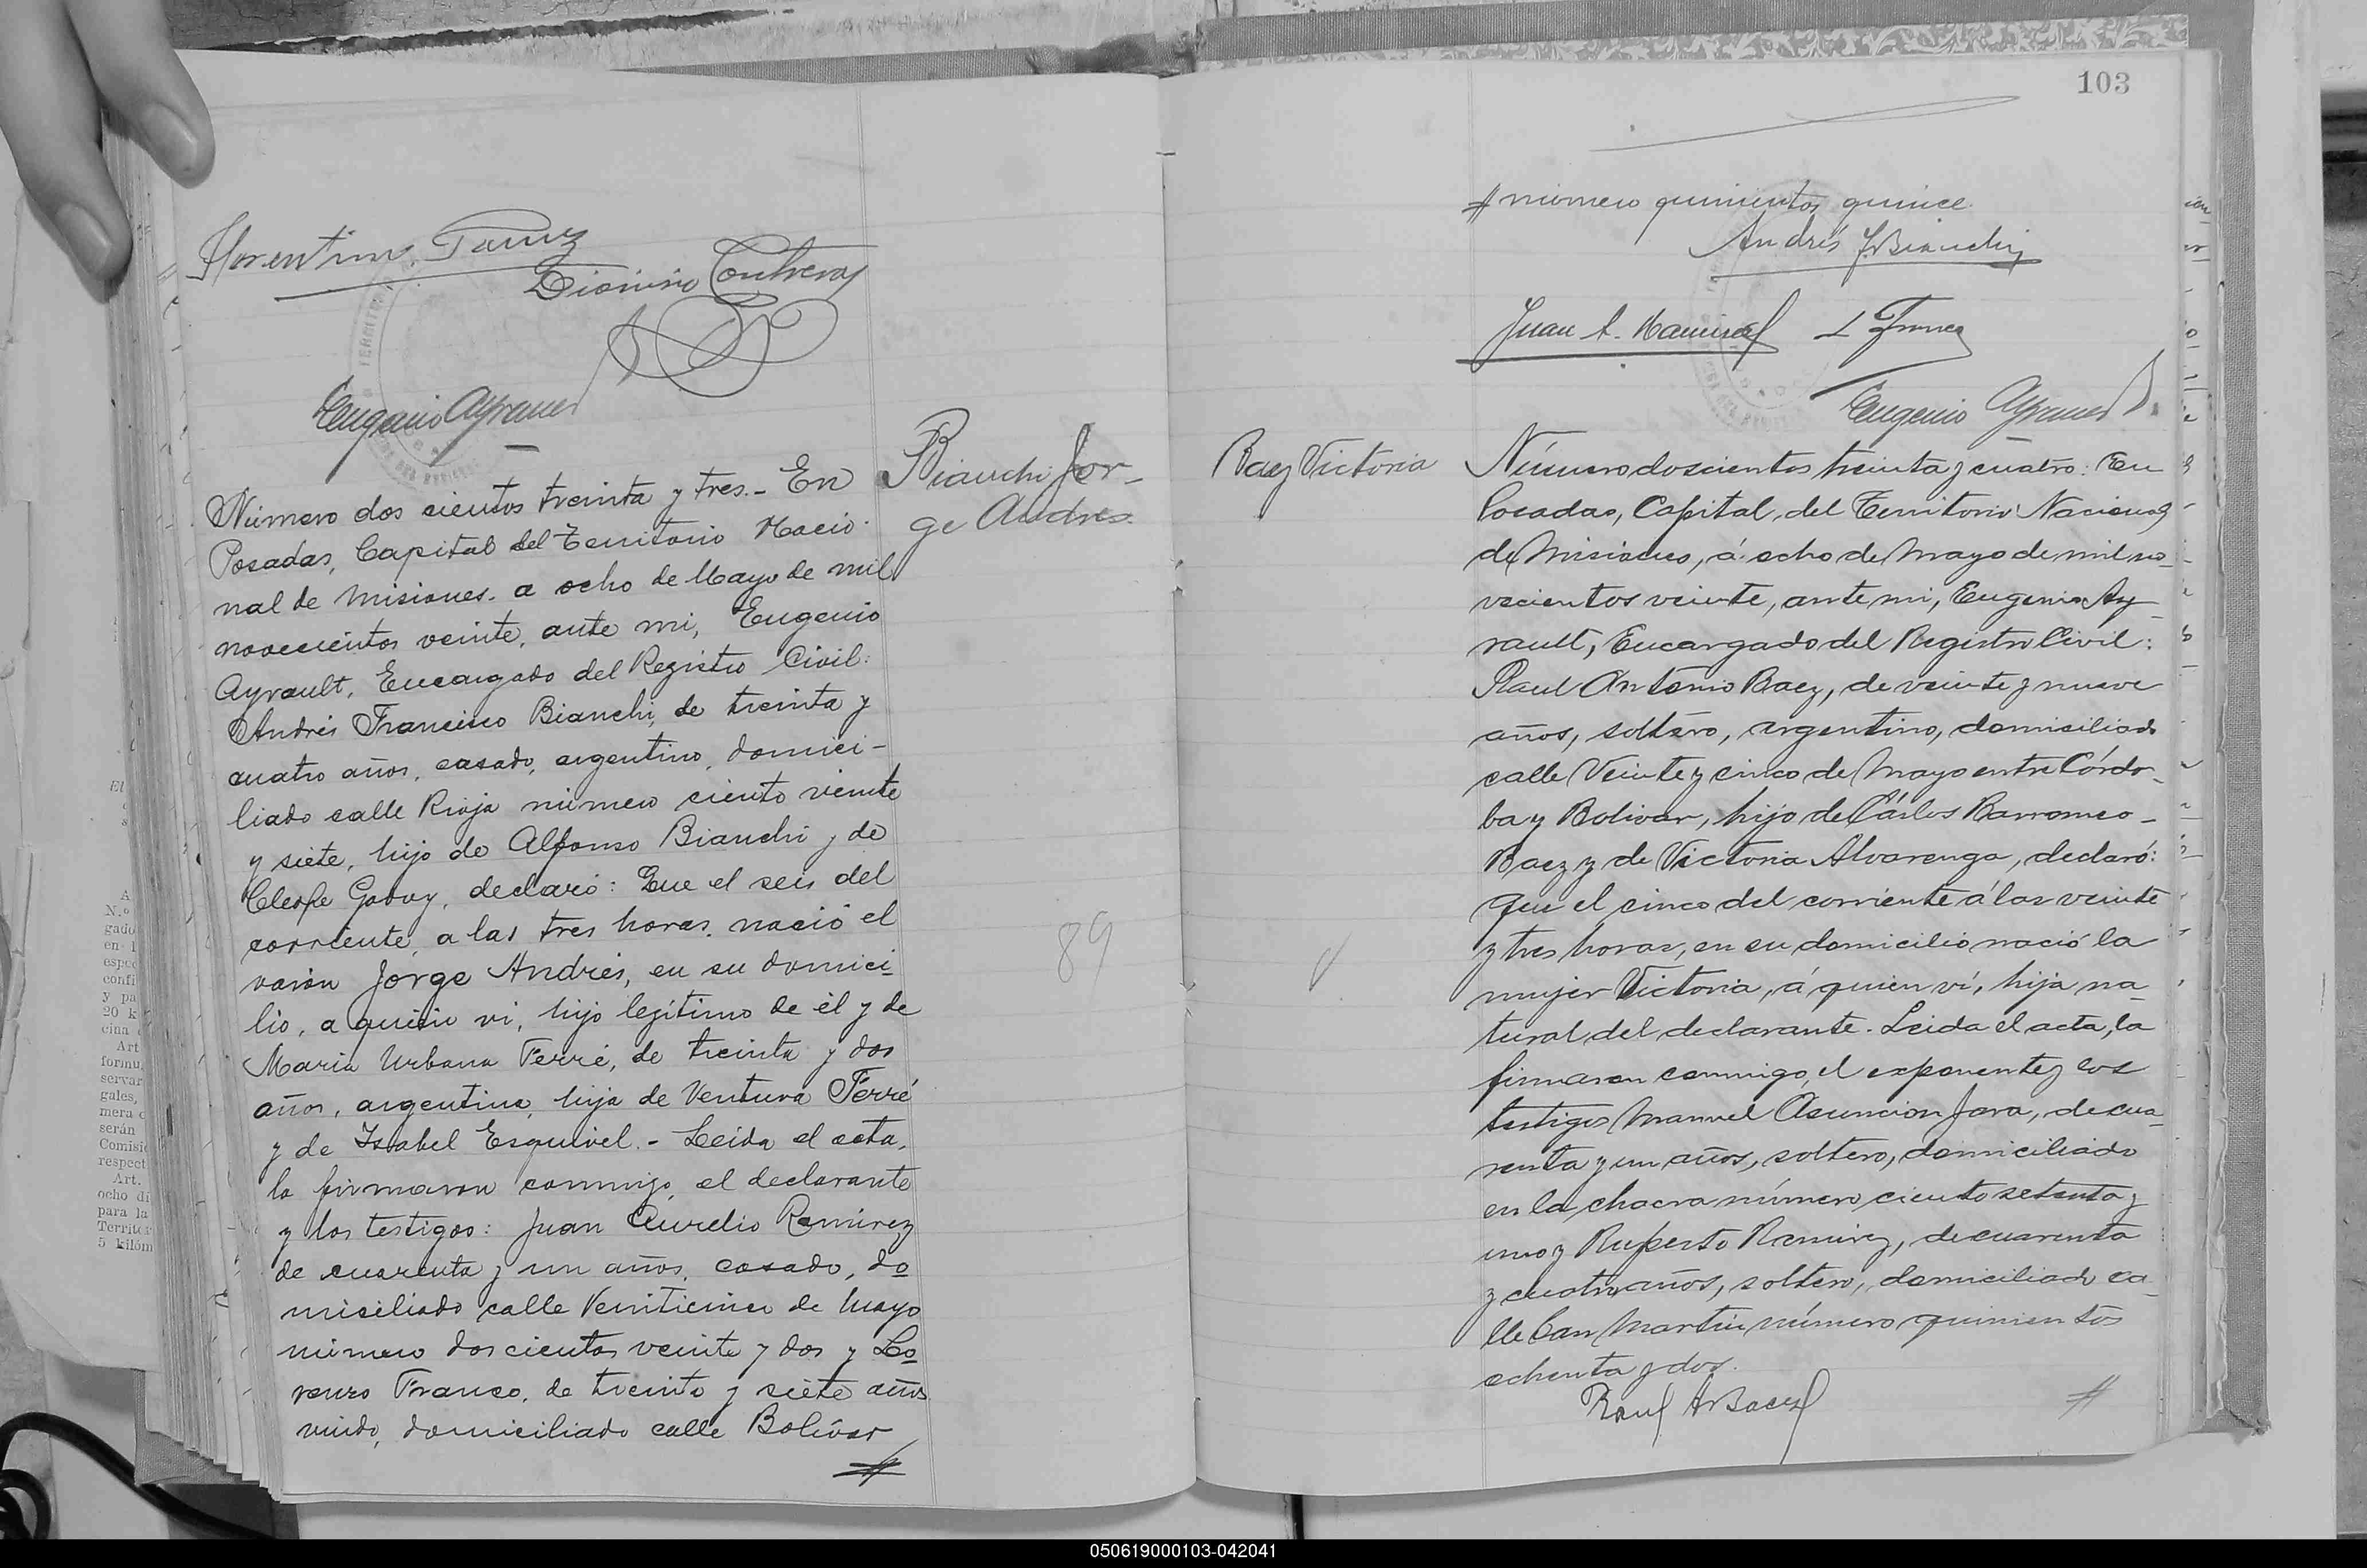 Florentino
Dionisio Contreras
Eugenio Ayrault
Bianchi Jor-
ge Andres.
Número dos cientos treinta y tres.- En
Posadas, Capital del Territorio Nacio-
nal de Misiones. a ocho de Mayo de mil
novecientos veinte, ante mi, Eugenio
Ayrault, Encargado del Registro Civil:
Andrés Francisco Bianchi, de treinta y
cuatro años, casado, argentino, domici-
liado calle Rioja número ciento veinte
y siete, hijo de Alfonso Bianchi y de
Cleofe Godoy, declaró: Que el seis del
corriente, a las tres horas, nació el
varón Jorge Andrés, en su domici-
lio, a quien vi, hijo legítimo de él y de
María Urbana Ferré, de treinta y dos
años, argentina, hija de Ventura Ferré
y de Isabel Esquivel.- Leida el acta,
la firmaron conmigo, el declarante
y los testigos: Juan Aurelio Ramírez
de cuarenta y un años, casado, do
miciliado calle Veinticinco de Mayo
número doscientos veinte y dos y Lo
renzo Franco, de treinta y siete años
viudo, domiciliado calle Bolívar
#
89
103
# número quinientos quince
Andrés F. Bianchi
Juan A. Ramirez L Franco
Eugenio Ayrault
Baez Victoria
Número doscientos treinta y cuatro: En
Posadas, Capital, del Territorio Nacional
de Misiones, á ocho de Mayo de mil no-
vecientos veinte, ante mi, Eugenio Ay-
rault, Encargado del Registro Civil:
Raul Antonio Baez, de veinte y nueve
años, soltero, argentino, domiciliado
calle Veinte y cinco de Mayo entre Córdo-
ba y Bolivar, hijo de Cárlos Barromeo-
Baez y de Victoria Alvarenga, declaró:
que el cinco del corriente á las veinte
y tres horas, en su domicilio nació la
mujer Victoria, á quien ví, hija na-
tural del declarante. Leida el acta, la
firmaron conmigo, el exponente y los
testigos Manuel Asuncion Jara, de cua-
renta y un años, soltero, domiciliado
en la chacra número ciento setenta y
uno y Ruperto Ramirez, de cuarenta
y cuatro años, soltero, domiciliado ca-
lle San Martín número quinientos
ochenta y dos.
Raul A Baez
#
El
A
N.º
gado
en l
espe
confi
y pa
20 k
cina
Art
formu
servar
gales,
mera
serán
Comisi
respect
Art.
ocho dí
para la
Territor
5 kilóm
050619000103-042041